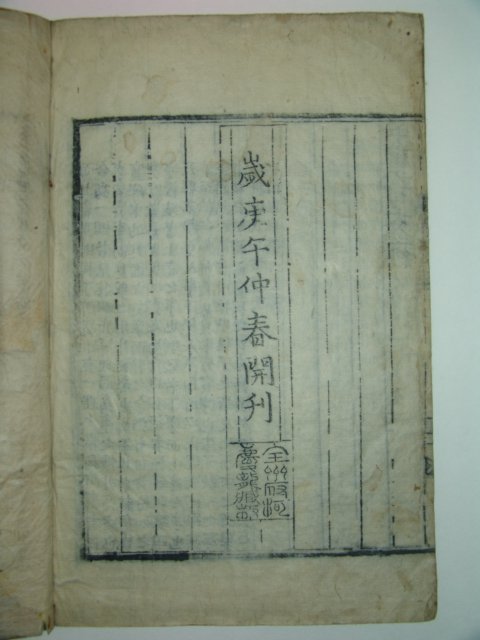 歲庚午仲春開刊
全州府河
慶龍藏板